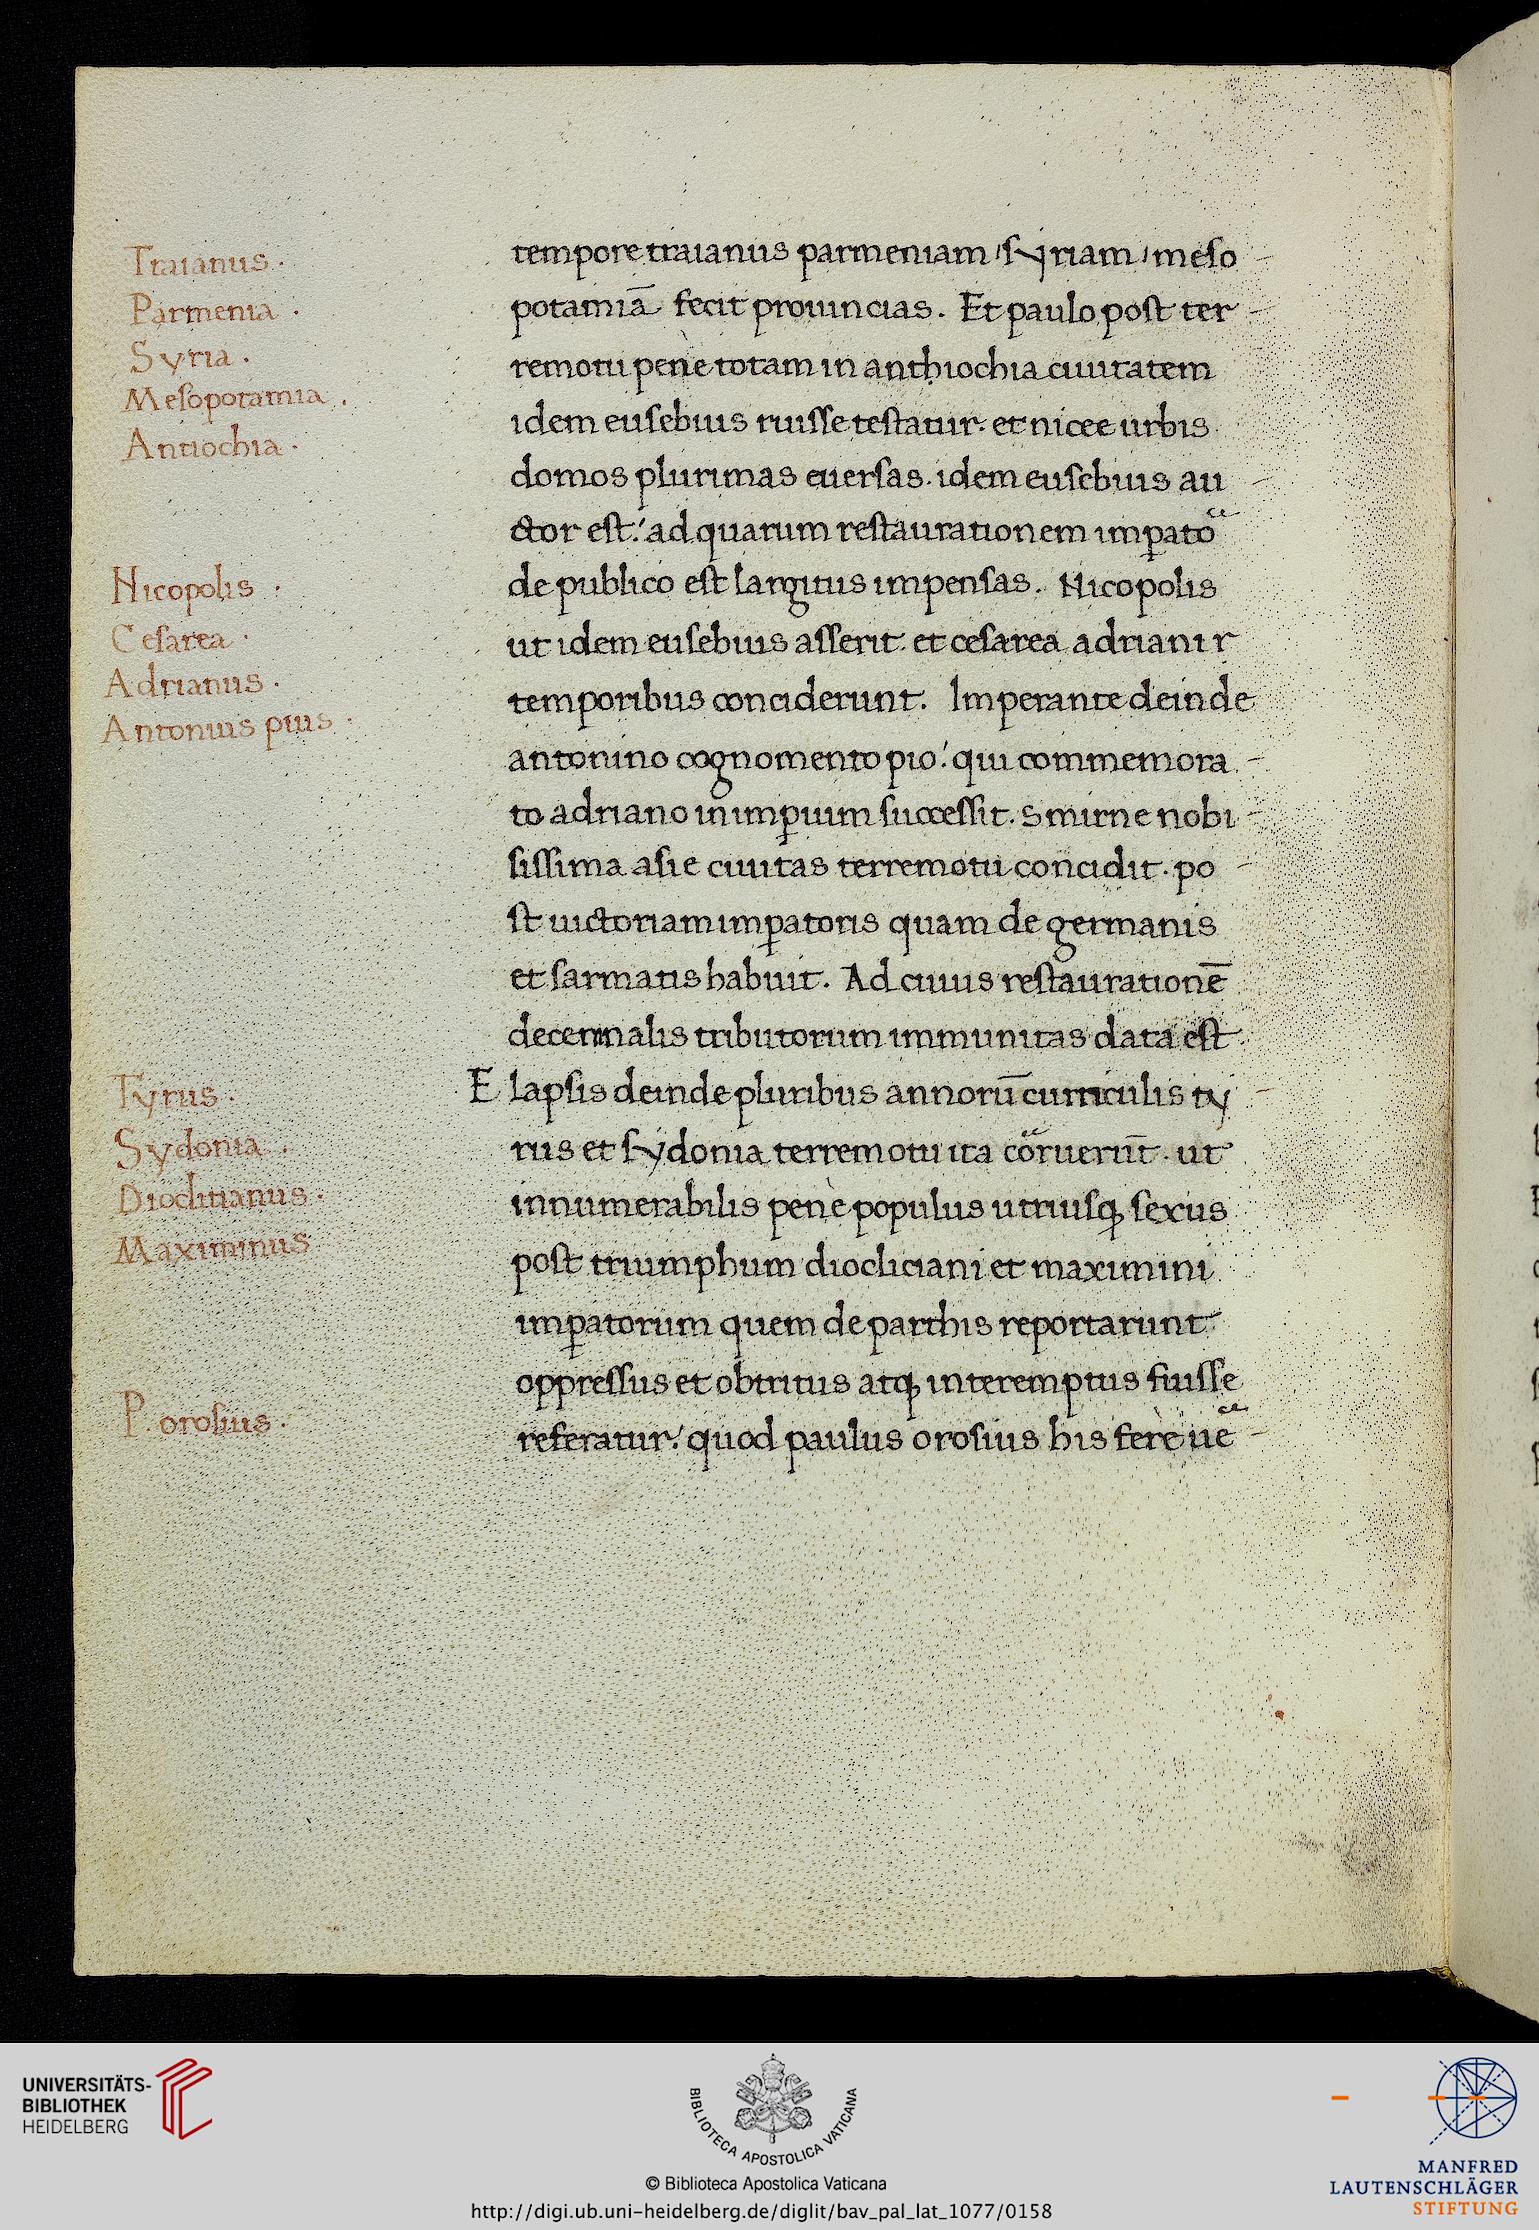 Traianus.
Parmenia.
Syria.
Mesopotamia.
Antiochia.
Nicopolis.
Cesarea.
Adrianus.
Antonius pius.
Tyrus.
Sydonia.
Dioclitianus.
Maximinus
P. orosius.
tempore traianus parmeniam, syriam, meso-
potamiā fecit prouincias. Et paulo post ter-
remotu penè totam in anthiochia ciuitatem
idem eusebius ruisse testatur. et nicee urbis
domos plurimas euersas. idem eusebius au-
ctor est: ad quarum restaurationem imꝑato
de publico est largitus impensas. Nicopolis
ut idem eusebius asserit. et cesarea adriani r
temporibus conciderunt. Imperante deinde
antonino cognomento pio: qui commemora-
to adriano in imꝑium successit. Smirne nobi-
lissima asie ciuitas terremotu concidit. po-
st uictoriam imꝑatoris quam de germanis
et sarmatis habuit. Ad cuius restaurationē
decennalis tributorum immunitas data est.
Elapsis deinde pluribus annorū curriculis ty-
rus et sydonia terremotu ita coruerūt. ut
innumerabilis penè populus utriusqꝫ sexus
post triumphum diocliciani et maximini
imꝑatorum quem de parthis reportarunt
oppressus et obtritus atqꝫ interemptus fuisse
referatur: quod paulus orosius his ferè ue-
UNIVERSITÄTS-
BIBLIOTHEK
HEIDELBERG
BIBLIOTECA APOSTOLICA VATICANA
© Biblioteca Apostolica Vaticana
http://digi.ub.uni-heidelberg.de/diglit/bav_pal_lat_1077/0158
MANFRED
LAUTENSCHLÄGER
STIFTUNG